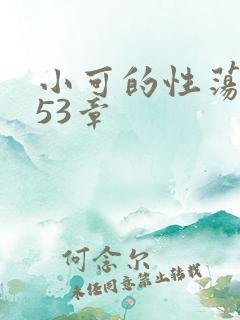 小可的性荡
53章
何念尔
未经同意禁止转载